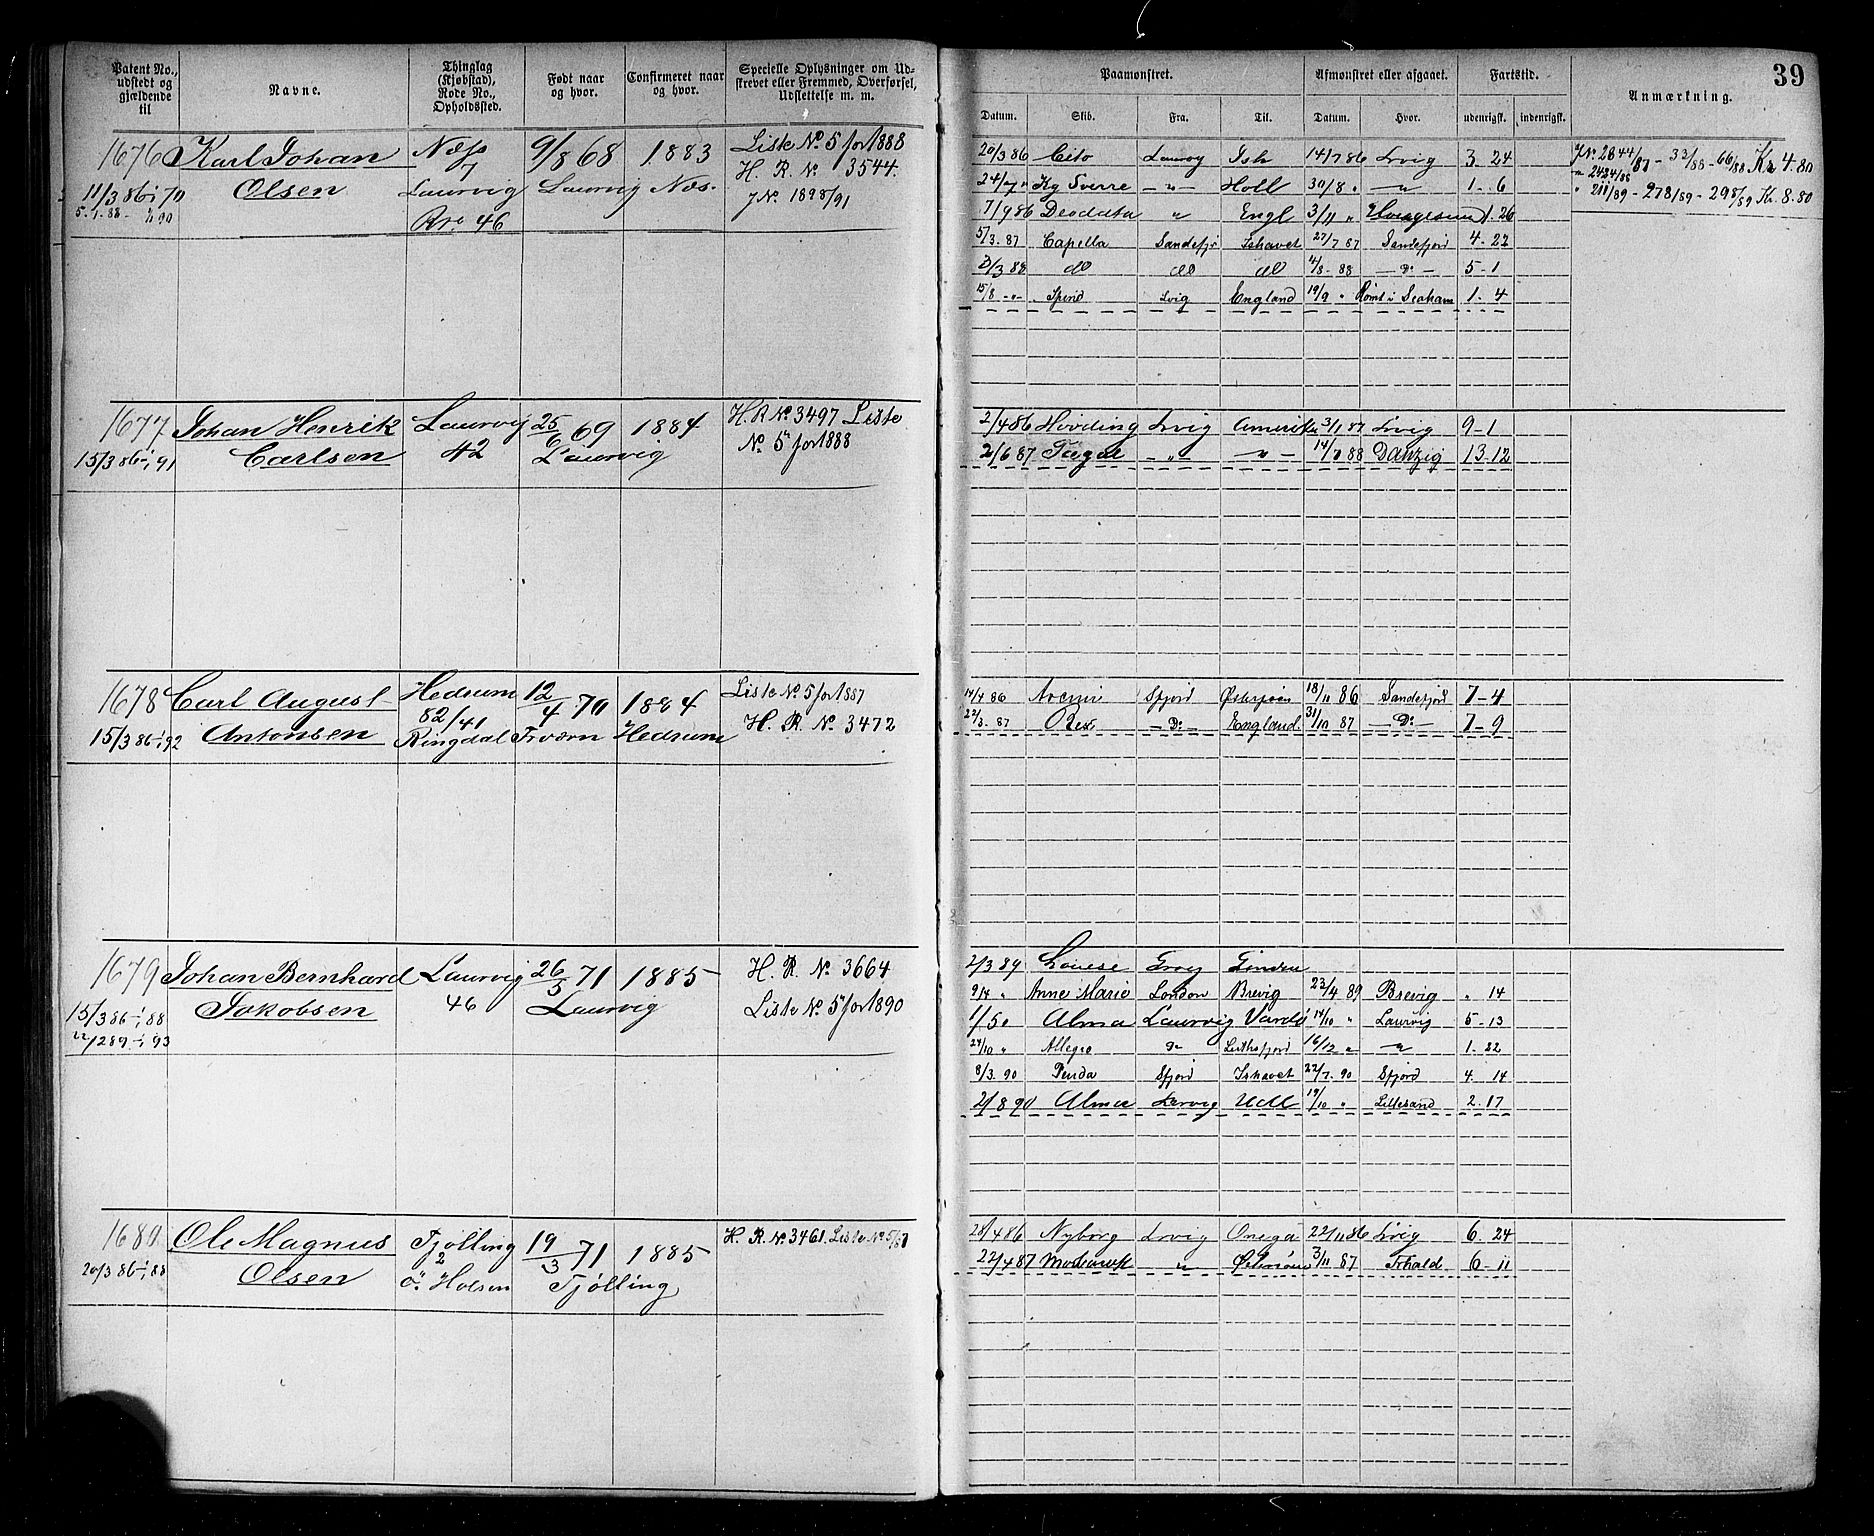 39
Patent No., udstedt og gjældende til
Navne.
Thinglag (Kjøbstad), Rode No., Opholdssted.
Født naar og hvor.
Confirmeret naar og hvor.
Specielle Oplysninger om Udskrevet eller Fremmed, Overførsel, Udslettelse m. m.
Paamønstret.
Afmønstret eller afgaaet.
Fartstid.
Anmærkning.
Datum. Skib. Fra. Til. Datum. Hvor. udenrigsk. indenrigsk.
1676 Karl Johan Næss 9/8 68 1883 Liste No 5 for 1888
Olsen 7 Laurvig Laurvig Næs. H. R. No 3544.
11/3 86
J No. 1898/91
46
20/3 86 Cito Ish 14/7 86 Lvig 3 24
24/7 " Kg Sverre —"— Holl 30/8 " —"— 1 - 6
7/9 86 Deodata " Engl 3/11 " 1. 26
5/3. 87 Capella Sandefj Ishavet 27/7 87 Sandefjord 4 - 22
/3 88 do do do 4/8 - 88 — Do — 5 - 1
15/8 -"- Lvig England 19/9 " Rømt i Seaham 1 - 4
Kr 4.80
Kr. 8.80
1677 Johan Henrik Laurvig 25/6 69 1884 H. R No 3497 Liste
15/3 86 - 1/1 91 Carlsen 42 Laurvig No. 5 for 1888
2/4 86 Høvding Lrvig Amerika 3/1 87 Lrvig 9 - 1
2/6 87 —"— —"— 14/7 88 Danzig 13 - 12
1678 Carl August Hedrum 12/4 70 1884 Liste No. 5 for 1887
15/3 86 - 1/1 92 Antonsen 52/41 Ringdal Tværn Hedrum H. R. No. 3472
14/4 86 Sfjord 18/11 86 Sandefjord 7 - 4
22/3. 87 Rex — Do — England. 31/10 87 — Do — 7 - 9
1679 Johan Bernhard Laurvig 26/5 71 1885 H. R. No 3664
15/3 86 - 1/1 88 Jakobsen 46 Laurvig Liste No. 5 for 1890
2/1 89 - 1/1 93
2/3 89 Louise
9/4 " Anne Marie London Brevig 23/4 89 Brevig " 14
1/5 " Alma Laurvig Vardø 14/10 " Laurvig 5 - 13
24/10 " Allegro Do 16/12 " —"— 1. 22
8/3. 90 Penda Sfjord Ishavet 22/7. 90 Sfjord 4. 14
2/8 90 Alma Larvig Udl 19/10 " Lillesand 2. 17
1680 Ole Magnus Tjølling 19/3 71 1885 H. R. No. 3461. Liste No 5/87
20/3 86 - 1/1 88 Olsen 2 Tjølling
28/4 86 Nyborg Lrvig Onega 22/11 86 Lrvig 6. 24
22/4 87 " 3/11 87 Frhald 6 - 11